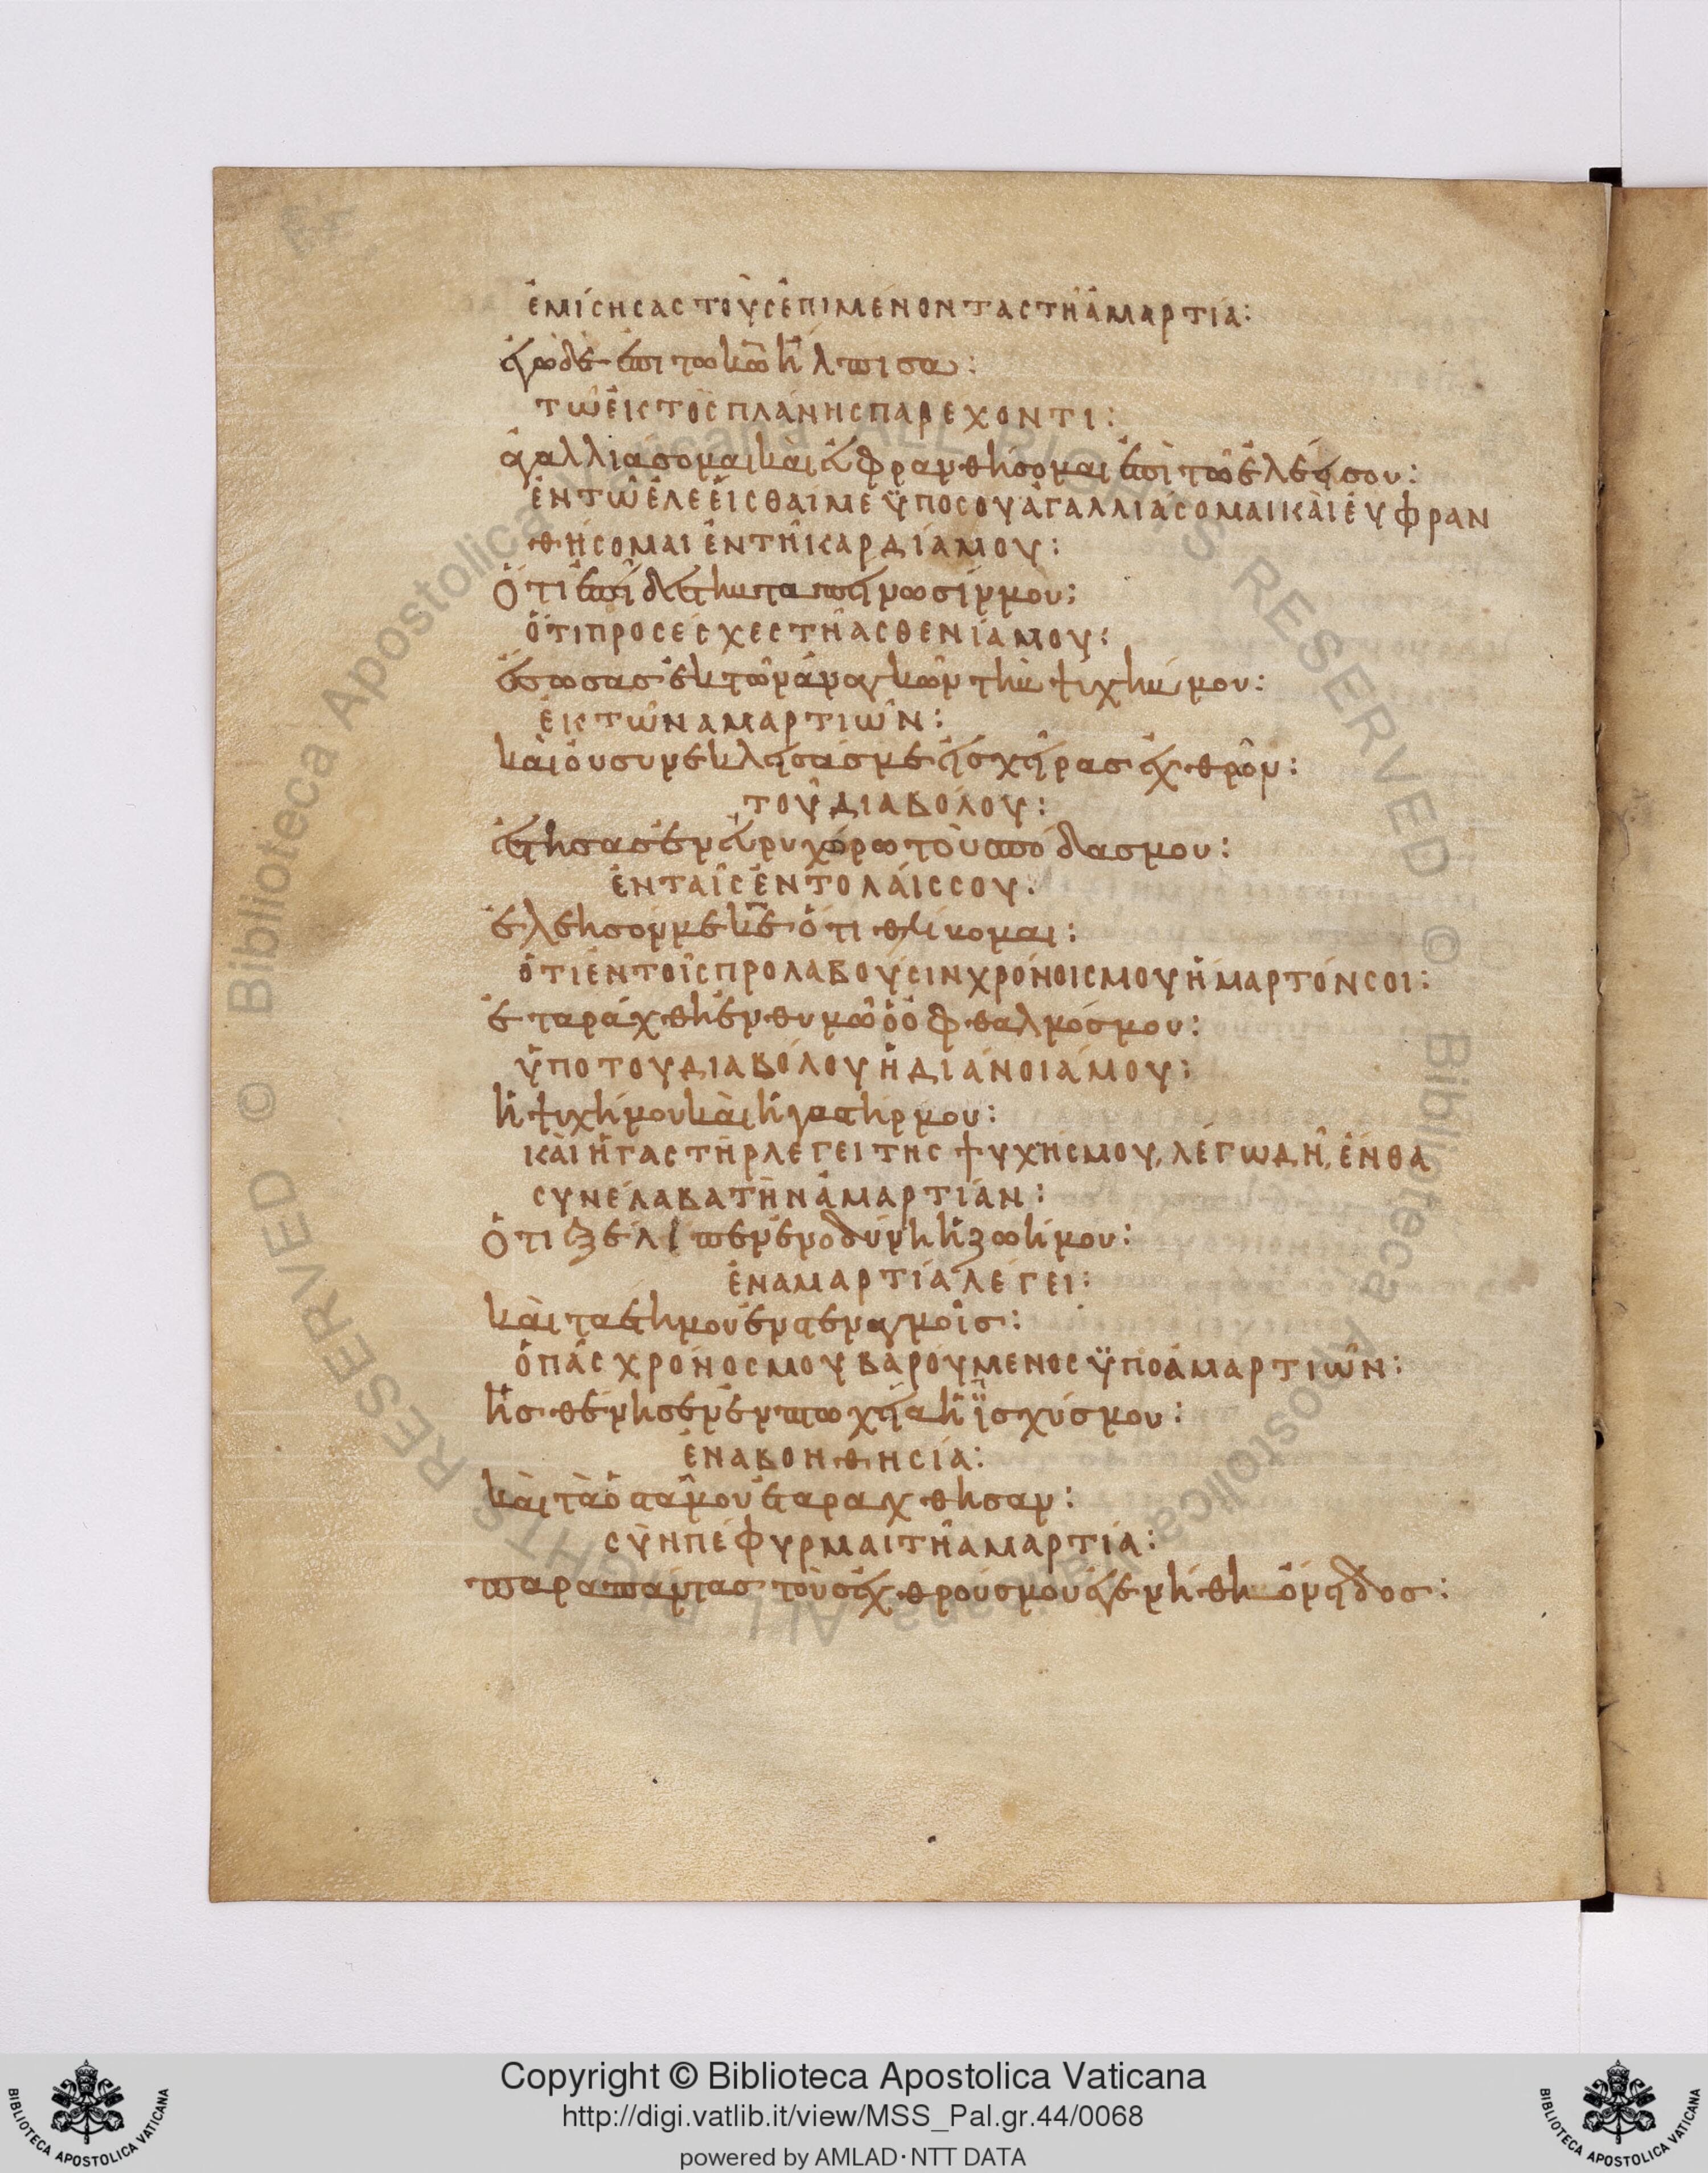 ἐμίσησας τοὺς ἐπιμένοντας τῆ ἁμαρτία:
ἐγὼ δὲ ἐπι τω κω̅ ἤλπισα:
τῶ ἐκτὸς πλάνης παρέχοντι:
ἀγαλλιάσομαι καὶ εὐφρανθήσομαι ἐπὶ τῶ ἐλέει σου:
ἐν τῶ ἐλεεῖσθαι με ὑπο σου ἀγαλλιάσομαι καὶ εὐφραν
θήσομαι ἐν τῆ καρδία μου:
ὅτι ἐπεῖδες τὴν ταπείνωσίν μου:
ὅτι προσέσχες τῆ ἀσθενία μου:
ἔσωσας ἐκ τῶν ἀναγκῶν τὴν ψυχήν μου:
ἐκ τῶν αμαρτιῶν:
καὶ οὐ συνέκλεισάς με εἰς χεῖρας ἐχθρῶν:
τοῦ διαβόλου:
ἔστησας ἐν εὐρυχόρω τοὺς πόδας μου:
ἐν ταῖς ἐντολάις σου:
ἐλέησόν με κε̅ ὅτι θλίβομαι:
ὅτι ἐν τοῖς προλαβοῦσιν χρόνοις μου ἥμαρτόν σοι:
ἐταράχθη ἐν θυμῶ ὁ ὀφθαλμός μου:
ὑπο του διαβόλου ἡ διάνοιά μου:
ἡ ψυχή μου καὶ ἡ γαστήρ μου:
καὶ ἡ γαστὴρ λέγει της ψυχῆς μου, λέγω δὴ, ἔνθα
συνέλαβα τὴν ἁμαρτίαν:
ὅτι ἐξέλιπεν ἐν ὀδύνη ἡ ζωή μου:
ἐν αμαρτία λέγει:
καὶ τα ἔτη μου ἐν στεναγμοῖς:
ὁ πᾶς χρόνος μου βαρούμενος ὑπο ἁμαρτιῶν:
ἠσθένησεν ἐν πτωχεία ἡ ἰσχύς μου:
ἐν αβοηθησία:
καὶ τὰ ὀστᾶ μου ἐταράχθησαν:
συνπέφυρμαι τῆ αμαρτία:
παρα πάντας τοὺς ἐχθρούς μου ἐγενήθην ὄνειδος:
Copyright © Biblioteca Apostolica Vaticana
http://digi.vatlib.it/view/MSS_Pal.gr.44/0068
powered by AMLAD·NTT DATA